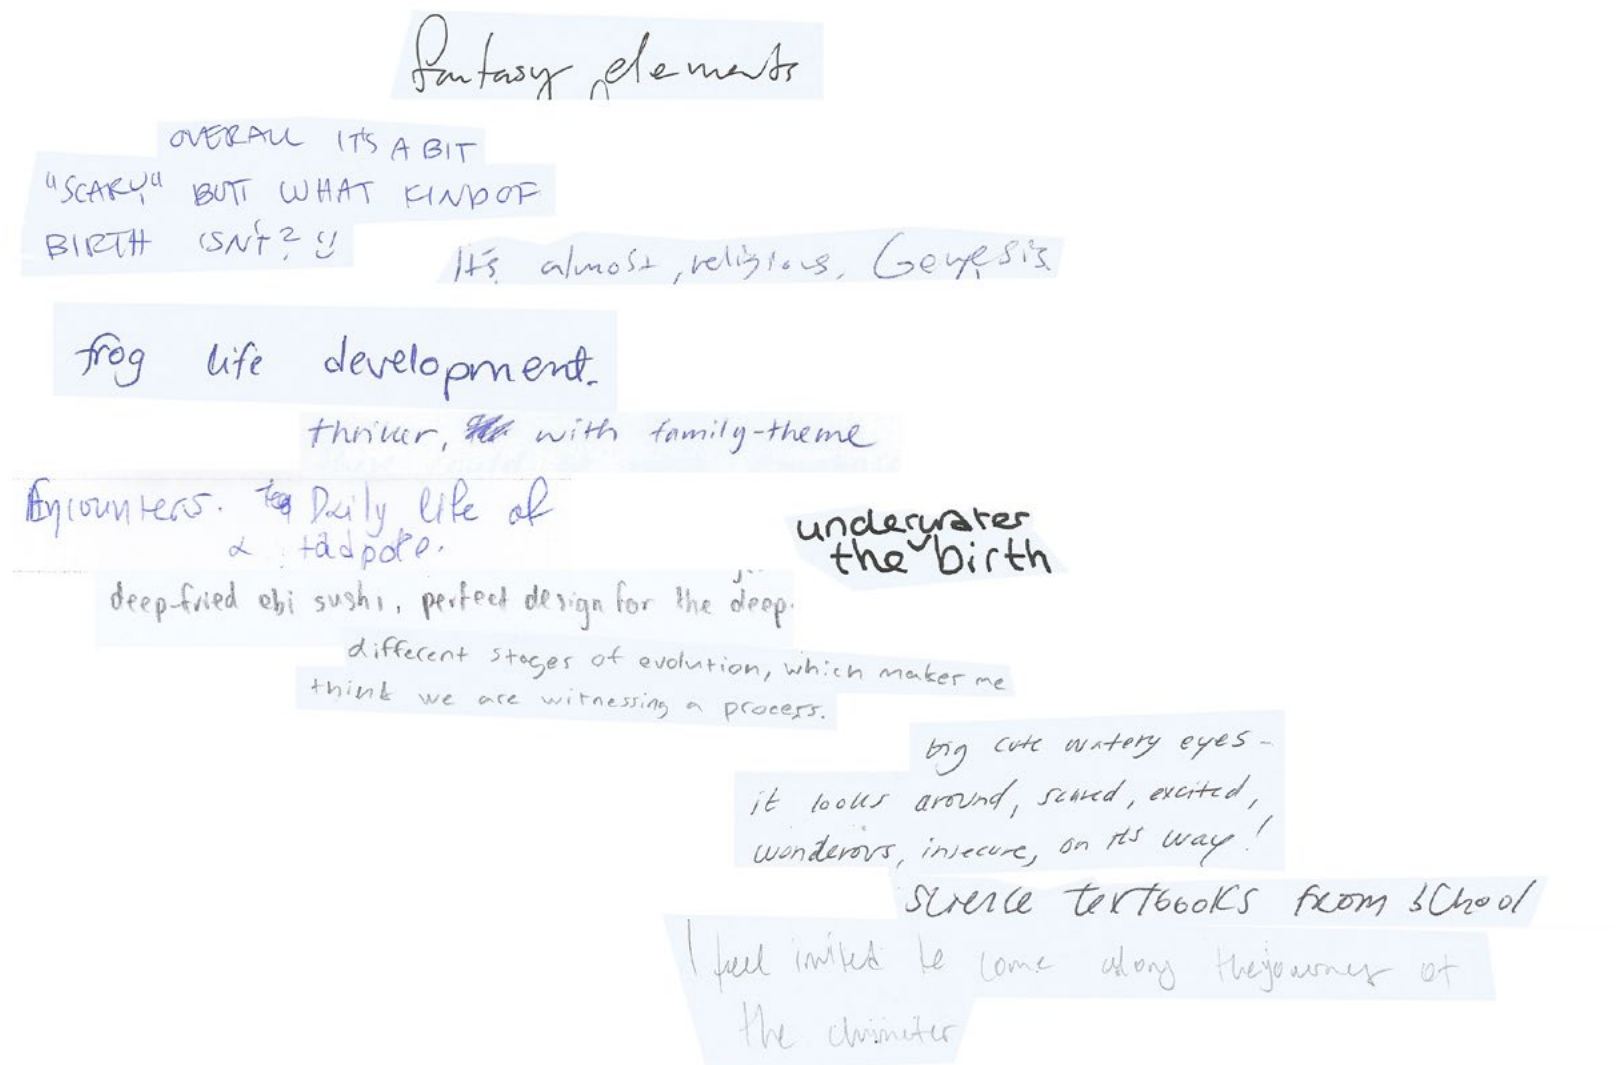 fantasy elements
OVERALL IT'S A BIT
"SCARY," BUT WHAT KIND OF
BIRTH ISN'T?
It's almost religious, Genesis
frog life development.
thriller, with family-theme
Encounters. Daily life of
a tadpole.
underwater
the birth
deep-fried ebi sushi, perfect design for the deep.
different stages of evolution, which makes me
think we are witnessing a process.
big cute watery eyes -
it looks around, scared, excited,
wonderous, insecure, on its way!
science textbooks from school
I feel invited to come along the journey of
the